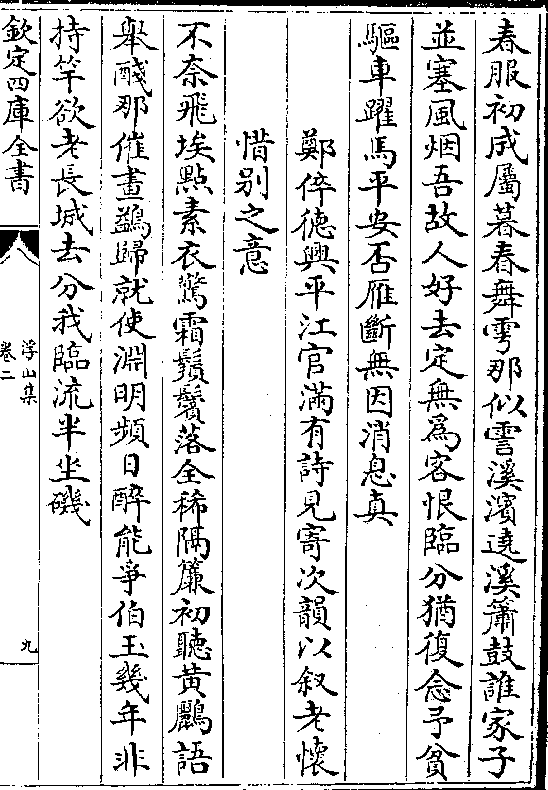 春服初成屬暮春舞雩那似雪溪濱遶溪簫鼓誰家子
並塞風烟吾故人好去定無為客恨臨分猶復念予貧
驅車躍馬平安否雁斷無因消息真
鄭倅德興平江官滿有詩見寄次韻以叙老懷
惜别之意
不奈飛埃點素衣驚霜鬚鬢落全稀隔簾初聽黄鸝語
舉醆那催畫鷁歸就使淵明頻日醉能爭伯玉幾年非
持竿欲老長城去分我臨流半坐磯
欽定四庫全書
浮山集
卷二
九